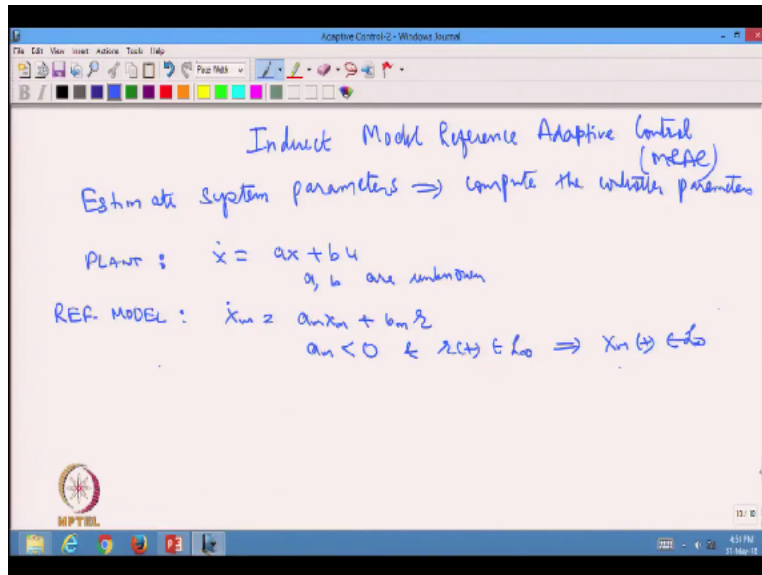 Adaptive Control-2 - Windows Journal
File Edit View Insert Actions Tools Help
Page Width
B I
Indirect Model Reference Adaptive Control
(MRAC)
Estimate system parameters ⇒ compute the controller parameters
PLANT : ẋ = ax + bu
a, b are unknown
REF. MODEL : ẋm = amxm + bmr
am < 0 & r(t) ∈ L∞ ⇒ xm(t) ∈ L∞
NPTEL
10 / 10
4:51 PM
31-May-18